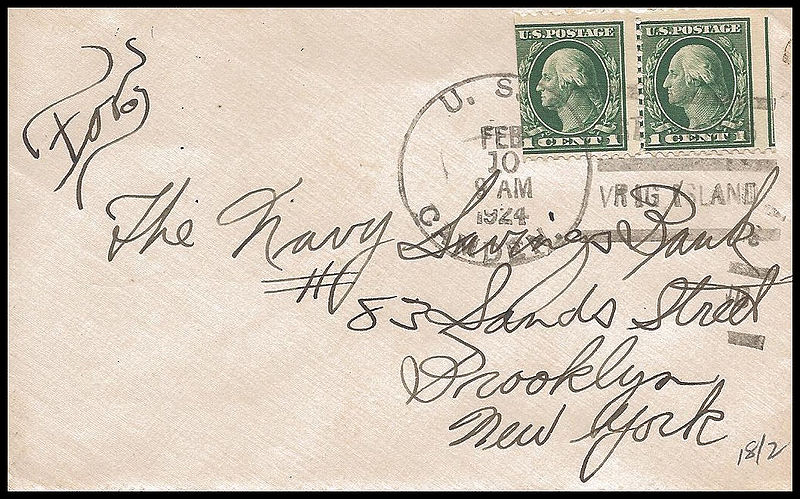 U.S. POSTAGE U.S. POSTAGE
1 CENT 1 1 CENT 1
U. S.
FEB
10
8 AM
1924
CAMDEN
ISLAND
The Navy Savings Bank
83 Sands Street
Brooklyn
New York
18/2